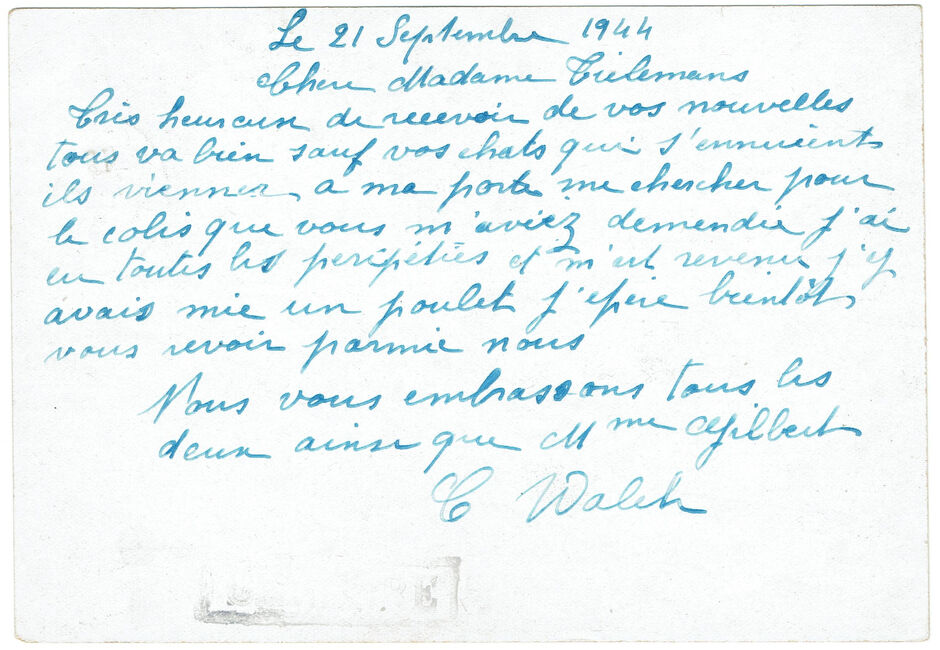 Le 21 Septembre 1944
Chere Madame Tielemans
Très heureuse de recevoir de vos nouvelles
tous va bien sauf vos chats qui s'ennuient
ils viennes a ma porte me chercher pour
le colis que vous m'aviez demendée j'ai
eu toutes les péripéties et m'est revenu j'y
avais mie un poulet j'espère bientôt
vous revoir parmie nous
Nous vous embrassons tous les
deux ainsi que Mme Gilbert
C Walch